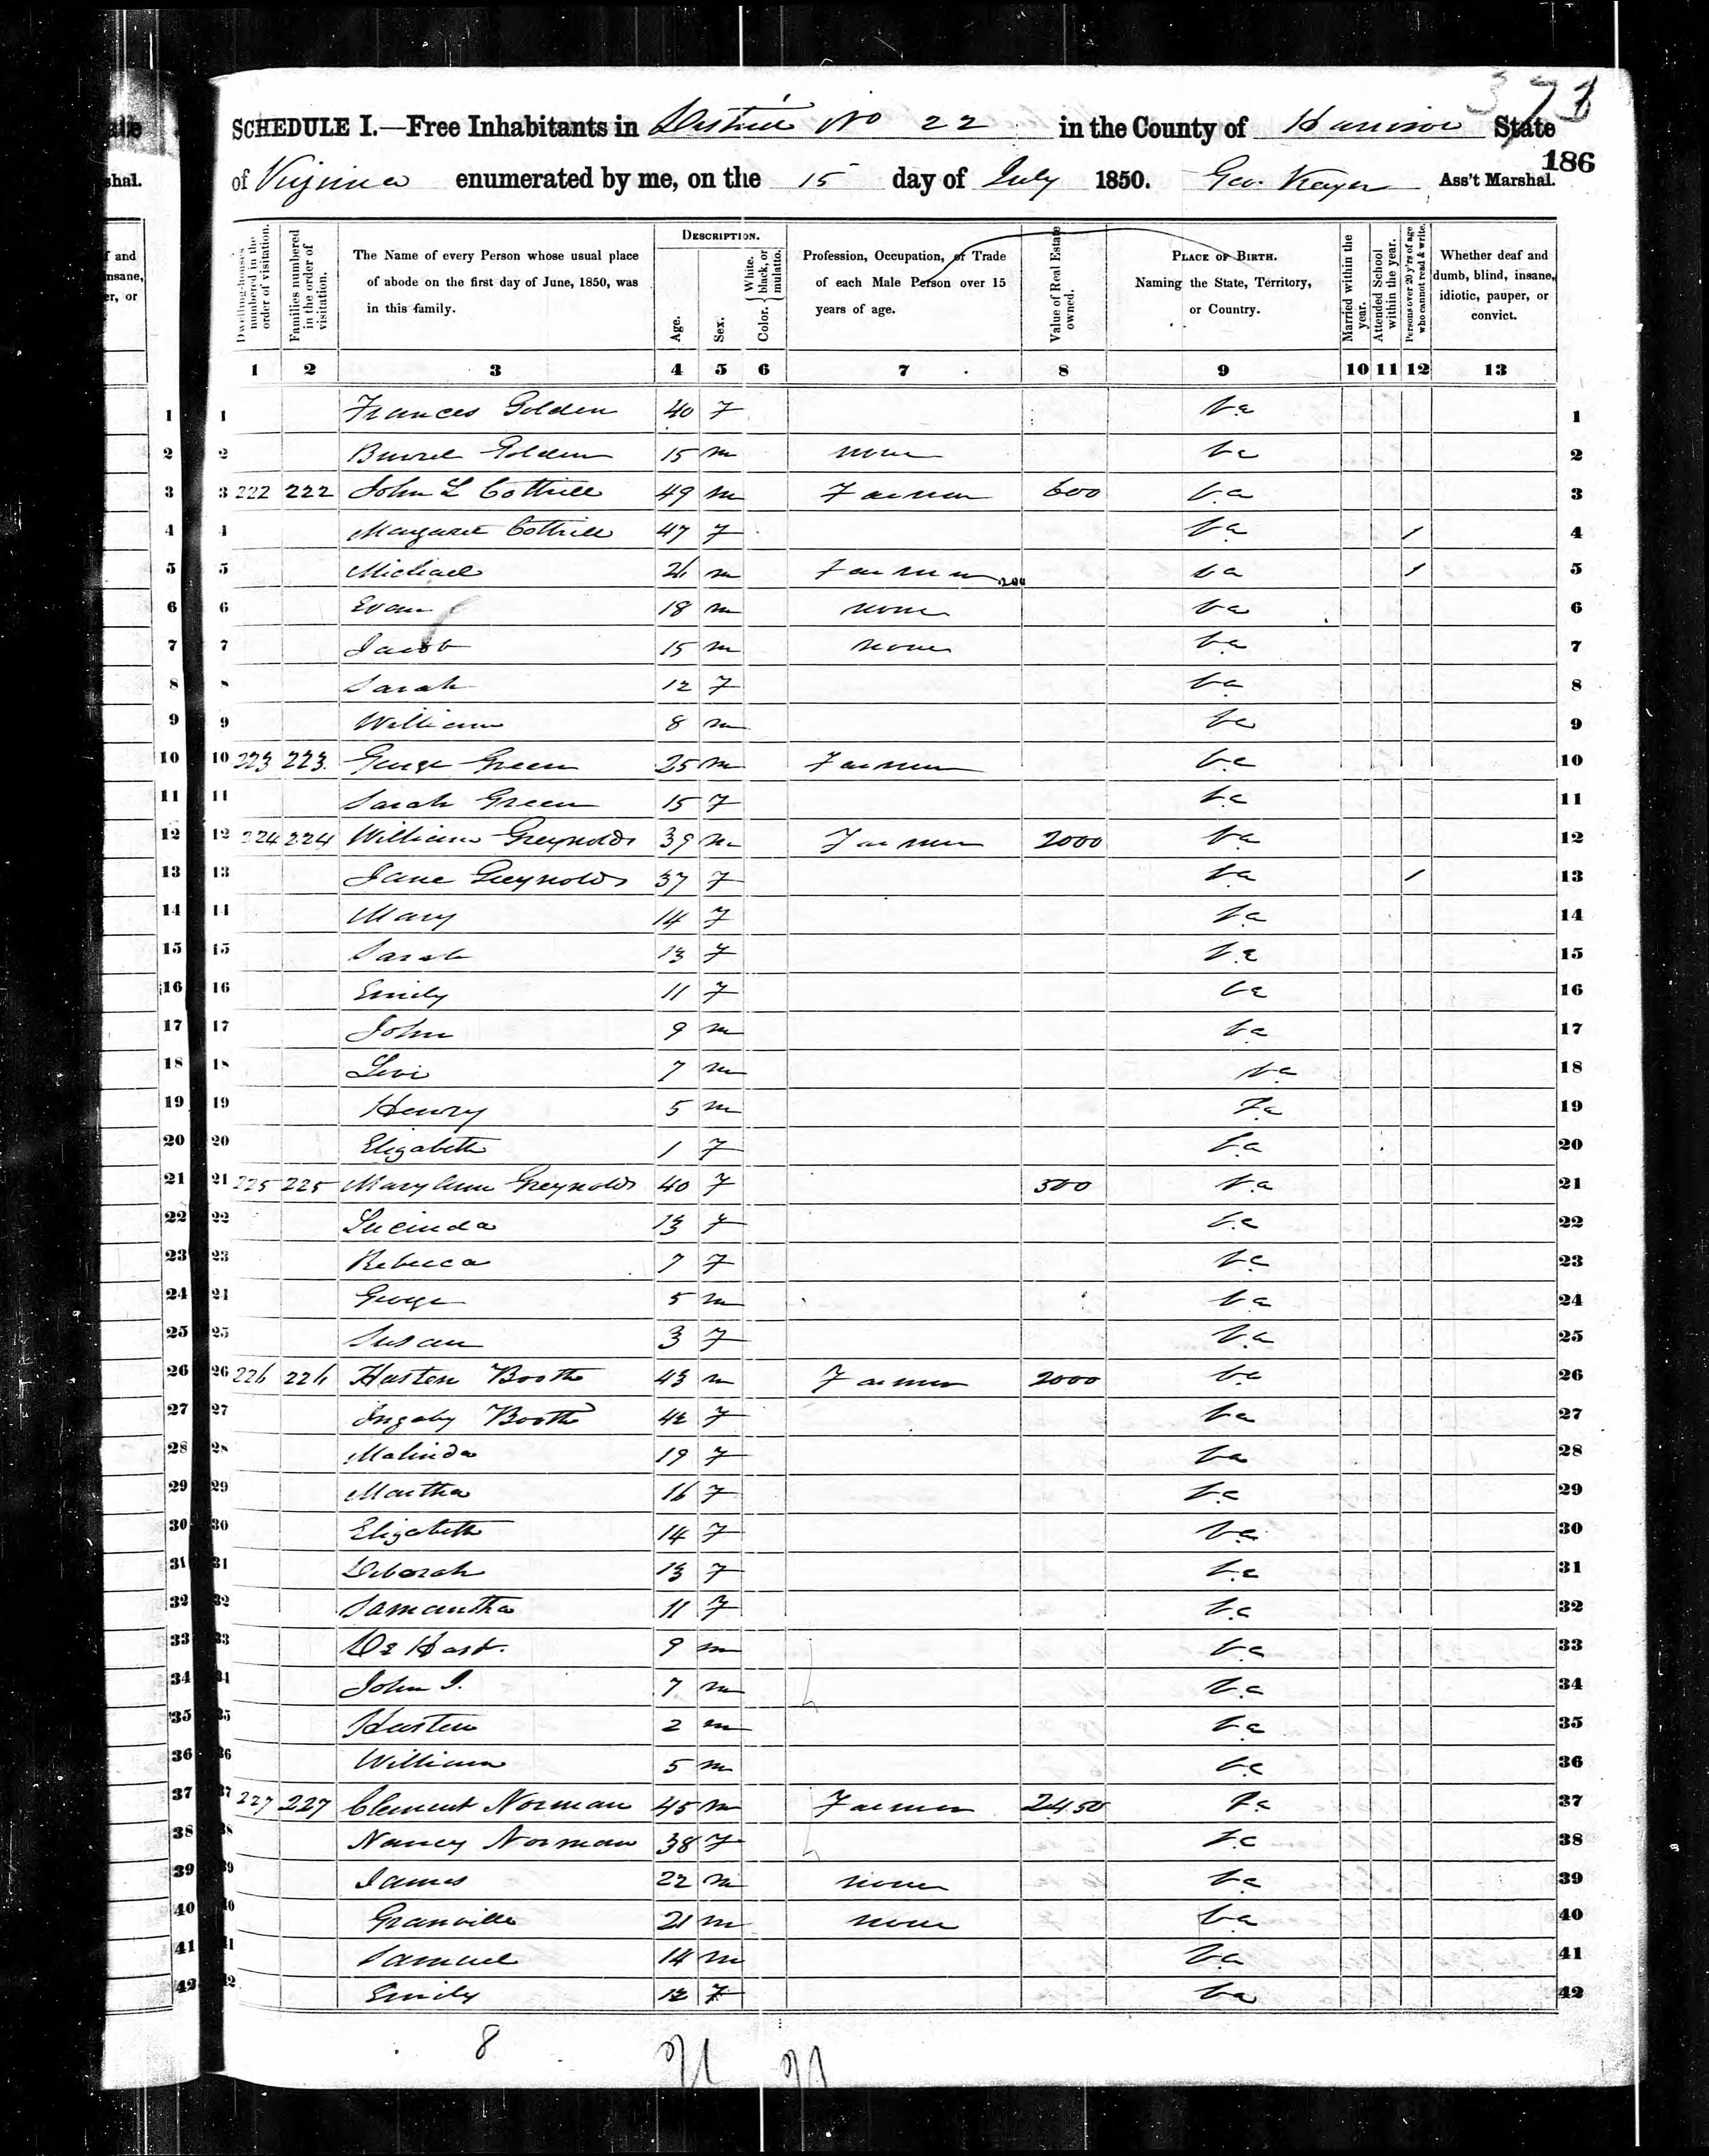 371
SCHEDULE I.—Free Inhabitants in District No 22 in the County of Harrison State
186
of Virginia enumerated by me, on the 15 day of July 1850. Geo. Ass't Marshal.
Dwelling-houses numbered in the order of visitation.
Families numbered in the order of visitation.
The Name of every Person whose usual place of abode on the first day of June, 1850, was in this family.
DESCRIPTION.
Age.
Sex.
Color. { White, black, or mulatto.
Profession, Occupation, or Trade of each Male Person over 15 years of age.
Value of Real Estate owned.
PLACE OF BIRTH. Naming the State, Territory, or Country.
Married within the year.
Attended School within the year.
Persons over 20 y'rs of age who cannot read & write.
Whether deaf and dumb, blind, insane, idiotic, pauper, or convict.
1 2 3 4 5 6 7 8 9 10 11 12 13
1 Frances Golden 40 F Va 1
2 Burrel Golden 15 m none Va 2
3 222 222 John L Cottrill 49 m Farmer 600 Va 3
4 Margaret Cottrill 47 F Va / 4
5 Michael m Farmer 200 Va / 5
6 Evan 18 m none Va 6
7 Jacob 15 m none Va 7
8 Sarah 12 F Va 8
9 William 8 m Va 9
10 223 223 George Green 25 m Farmer Va 10
11 Sarah Green 15 F Va 11
12 224 224 William Greynolds 39 m Farmer 2000 Va 12
13 Jane Greynolds 37 F Va / 13
14 Mary 14 F Va 14
15 Sarah 13 F Va 15
16 Emily 11 F Va 16
17 John 9 m Va 17
18 Levi 7 m Va 18
19 Henry 5 m Va 19
20 Elizabeth 1 F Va 20
21 225 225 Mary Ann Greynolds 40 F 500 Va 21
22 Lucinda 13 F Va 22
23 Rebecca 7 F Va 23
24 George 5 m Va 24
25 Susan 3 F Va 25
26 226 226 Hasten Booth 43 m Farmer 2000 Va 26
27 Ingaby Booth 42 F Va 27
28 Malinda 19 F Va 28
29 Martha 16 F Va 29
30 Elizabeth 14 F Va 30
31 Deborah 13 F Va 31
32 Samantha 11 F Va 32
33 De Hart. 9 m Va 33
34 John I. 7 m Va 34
35 Hasten 2 m Va 35
36 William 5 m Va 36
37 227 227 Clement Norman 45 m Farmer 2450 Va 37
38 Nancy Norman 38 F Va 38
39 James 22 m none Va 39
40 Granville 21 m none Va 40
41 Samuel 14 m Va 41
42 Emily 12 F Va 42
8